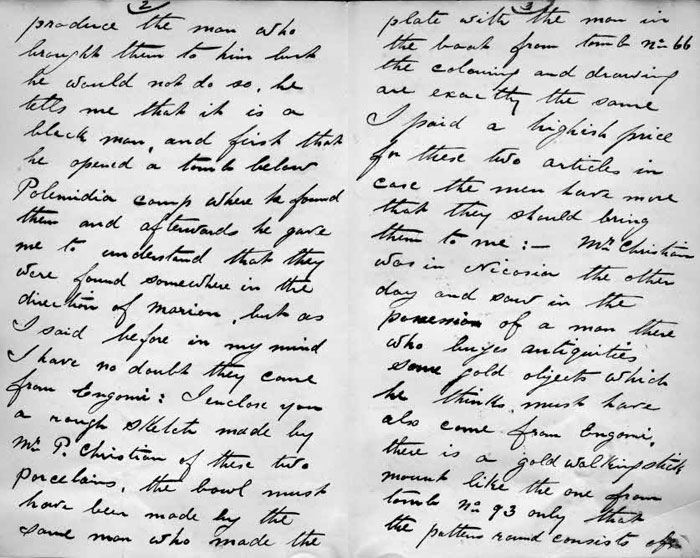 2
produce the man who
brought them to him but
he would not do so, he
tells me that it is a
black man, and first that
he opened a tomb below
Polemidia camp where he found
them and afterwards he gave
me to understand that they
were found somewhere in the
direction of Marion, but as
I said before in my mind
I have no doubt they came
from Engomi: I enclose you
a rough sketch made by
Mr P. Christian of these two
porcelains, the bowl must
have been made by the
same man who made the
3
plate with the man in
the boat from tomb no 66
the colouring and drawing
are exactly the same
I paid a highish price
for these two articles in
case the men have more
that they should bring
them to me :— Mr Christian
was in Nicosia the other
day and saw in the
possession of a man there
who buyes antiquities
some gold objects which
he thinks must have
also come from Engomi,
there is a gold walking stick
mount like the one from
tomb no 93 only that
the pattern round consists of